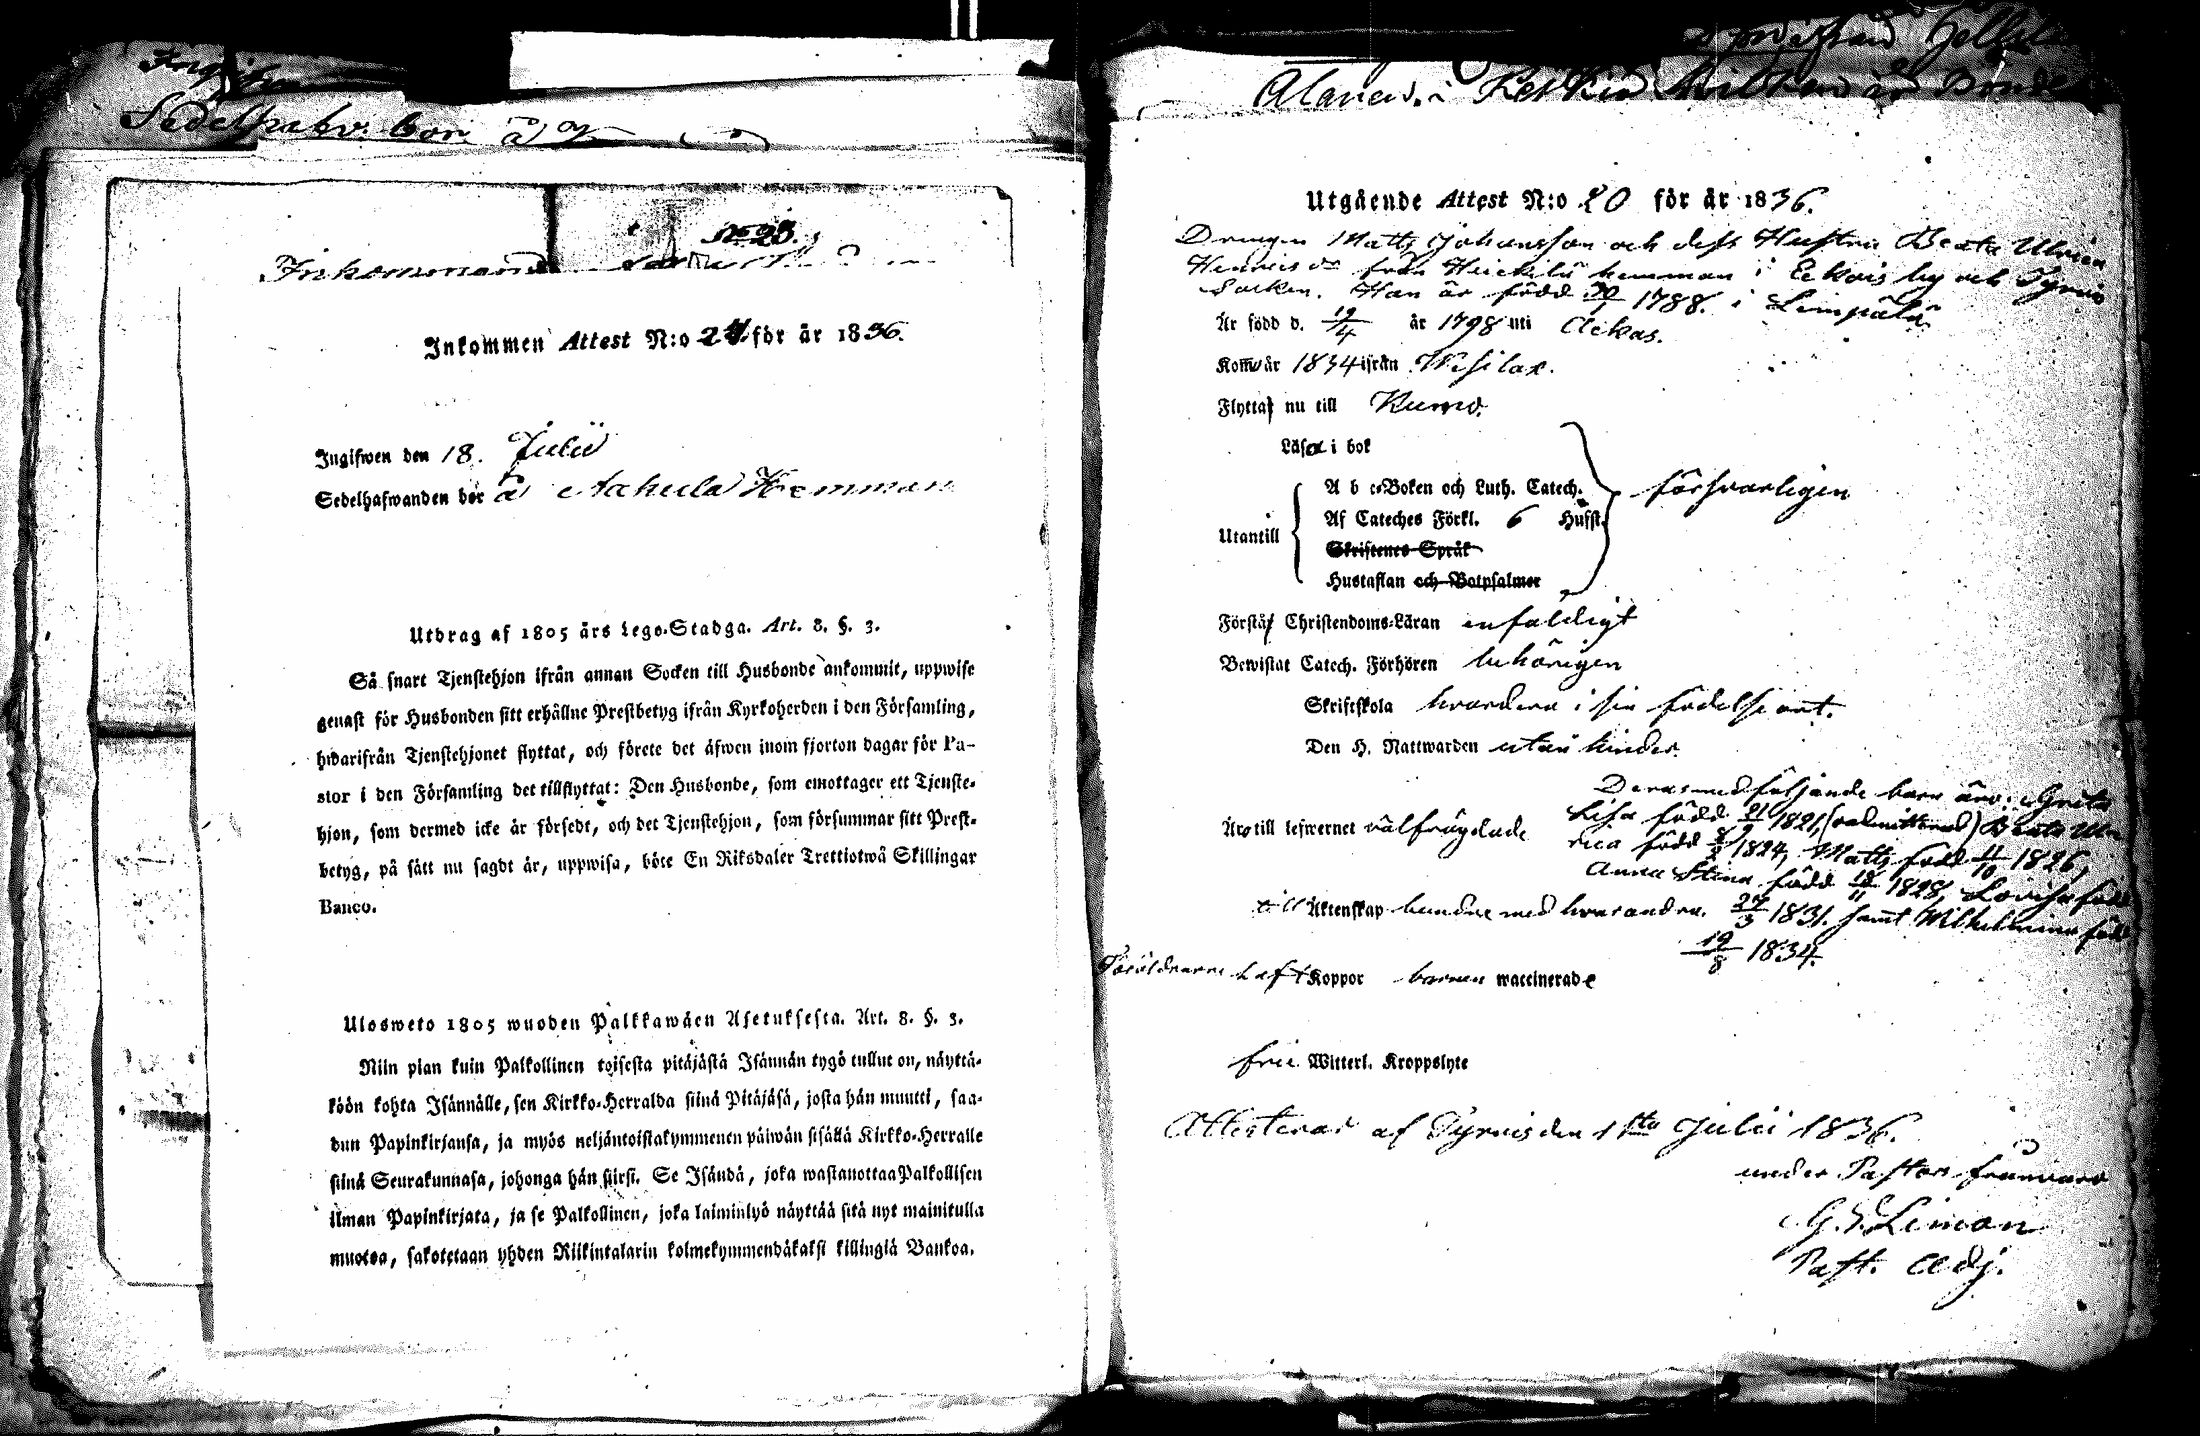 Sedelhafv. bor å
Inkommen Attest N:o 24 för år 1836.
Ingifwen den 18. Julii
Sedelhafwanden bor å Aakula Hemman
Utdrag af 1805 års Lego-Stadga. Art. 8. §. 3.
Så snart Tjenstehjon ifrån annan Socken till Husbonde ankommit, uppwise
genast för Husbonden sitt erhållne Prestbetyg ifrån Kyrkoherden i den Församling,
hwarifrån Tjenstehjonet flyttat, och förete det äfwen inom fjorton dagar för Pa-
stor i den Församling det tillflyttat: Den Husbonde, som emottager ett Tjenste-
hjon, som dermed icke är försedt, och det Tjenstehjon, som försummar sitt Prest-
betyg, på sätt nu sagdt är, uppwisa, böte En Riksdaler Trettiotwå Skillingar
Banco.
Ulosweto 1805 wuoden Palkkawäen Asetuksesta. Art. 8. §. 3.
Niin pian kuin Palkollinen toisesta pitäjästä Isännän tygö tullut on, näyttä-
köön kohta Isännälle, sen Kirkko-Herralda siinä Pitäjäsä, josta hän muutti, saa-
dun Papinkirjansa, ja myös neljäntoistakymmenen päiwän sisällä Kirkko-Herralle
siinä Seurakunnasa, johonga hän siirsi. Se Isändä, joka wastanottaa Palkollisen
ilman Papinkirjata, ja se Palkollinen, joka laiminlyö näyttää sitä nyt mainitulla
muotoa, sakotetaan yhden Riikintalarin kolmekymmendäkaksi killingiä Bankoa.
Utgående Attest N:o 20 för år 1836.
Drengen Matts Johansson och dess Hustru Beata Ulrica
Henricsdr från Heickilä hemman i Eckois by och Tyrvis
Socken. Han är född 30/7 1788. i Lempälä
Är född d. 19/4 år 1798 uti Ackas.
Kom år 1834 ifrån Wesilax.
Flytta nu till Kumo.
Läsa i bok
A b c-Boken och Luth. Catech. försvarligen
Af Cateches Förkl. 6 Hufst.
Utantill
Skriftenes Språk
Hustaflan och Botpsalmer
Förstå Christendoms-Läran enfaldigt
Bewistat Catech. Förhören behörigen
Skriftskola hvardera i sin födelse ort.
Den H. Nattwarden utan hinder.
Deras medföljande barn äro: Greta
Lisa född 21/9 1821, (admitterad) Beata Ul-
Äro till lefwernet välfrägdade
rica född 1824, Matts född 11/10 1826,
Anna Stina född 18/11 1828, Lovisa född
till Äktenskap bundne med hvarandra. 27/3 1831. samt Wilhelmina född
19/8 1834.
Föräldrarne haft Koppor barnen waccinerade
frie Witterl. Kroppslyte
Attesterar af Tyrvis den 1sta Julii 1836.
under Pastors frånvaro
G. S. Liman
Past. Adj.